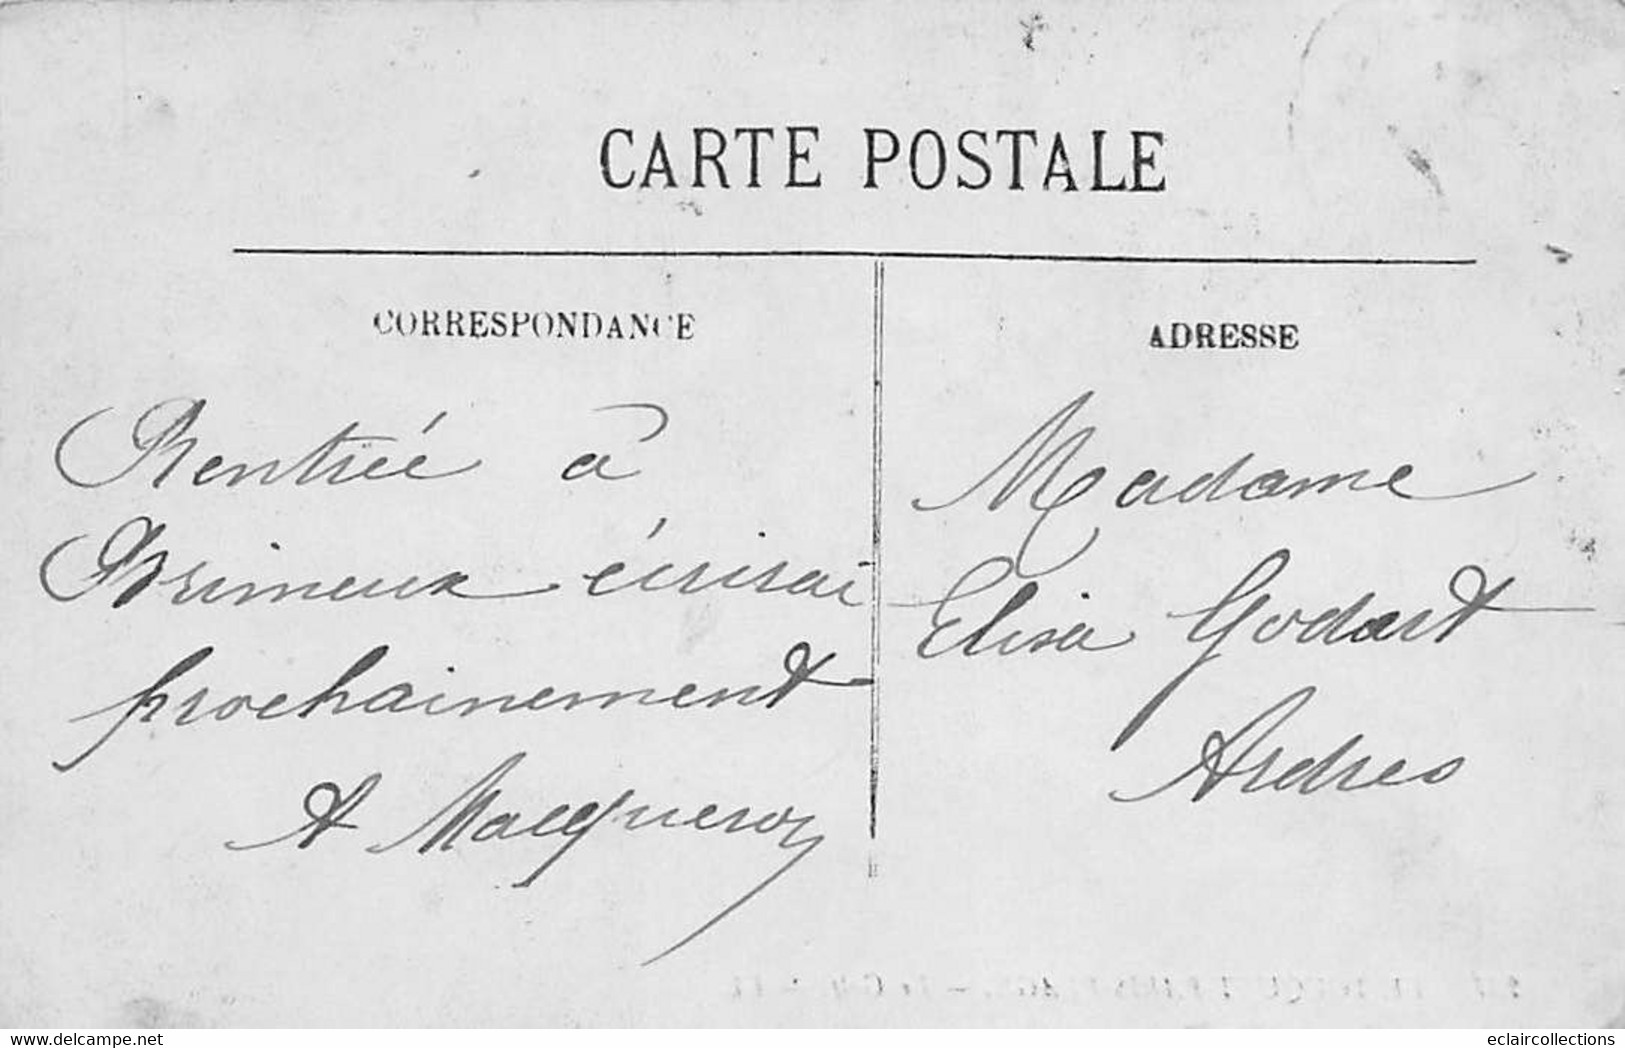 CARTE POSTALE
CORRESPONDANCE
ADRESSE
Rentrée à
Brimeux écrirai
prochainement
A Macqueron
Madame
Elisa Godart
Ardres
www.delcampe.net
eclaircollections